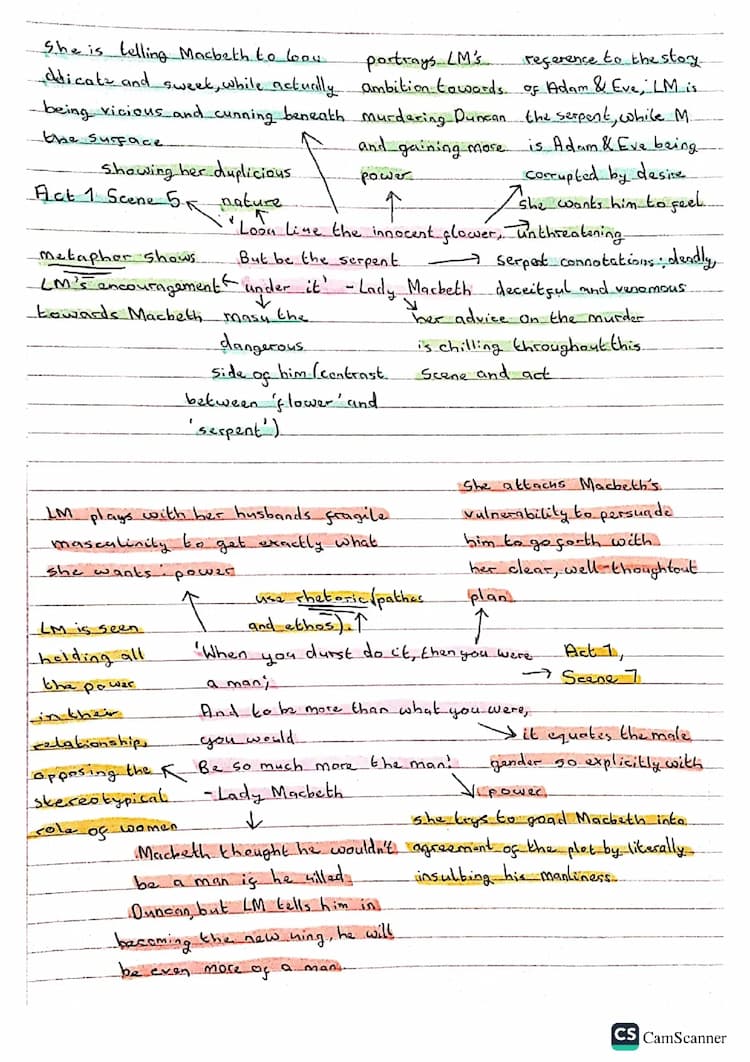 She is telling Macbeth to look
ddicate and sweet, while actually
being vicious and cunning beneath
the surface
portrays LM's
ambition towards
murdering Duncan
and gaining more
power
reference to the story
of Adam & Eve; LM is
the serpent, while M
is Adam & Eve being
corrupted by desire
showing her duplicious
nature
Act 1 Scene 5
she wants him to feel
unthreatening
'Look like the innocent flower,
But be the serpent
under it' - Lady Macbeth
metaphor shows
LM's encouragement
towards Macbeth
serpent connotations: deadly,
deceitful and venomous
mask the
dangerous
side of him (contrast
between 'flower' and
'serpent')
her advice on the murder
is chilling throughout this
scene and act
LM plays with her husbands fragile
masculinity to get exactly what
she wants: power
She attacks Macbeth's
vulnerability to persuade
him to go forth with
her clear, well-thoughtout
plan
use rhetoric (pathos
and ethos).
LM is seen
holding all
the power
in their
relationship,
opposing the
stereotypical
role of women
'When you durst do it, then you were
a man;
And to be more than what you were,
you would
Be so much more the man!'
- Lady Macbeth
Act 1,
Scene 7
it equates the male
gender so explicitly with
power
she trys to goad Macbeth into
agreement of the plot by literally
insulting his manliness.
Macbeth thought he wouldn't
be a man if he killed
Duncan, but LM tells him in
becoming the new king, he will
be even more of a man.
CS CamScanner